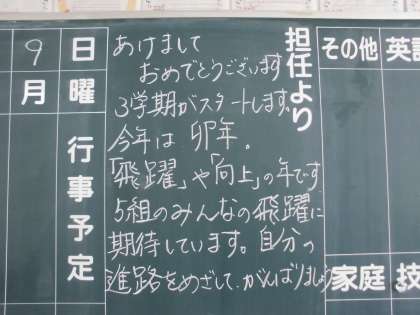 9日
月曜
行事予定
担任より
あけまして
おめでとうございます
3学期がスタートします。
今年は 卯年。
「飛躍」や「向上」の年です
5組のみんなの飛躍に
期待しています。自分の
進路をめざして、がんばりましょう
その他
英語
家庭
技